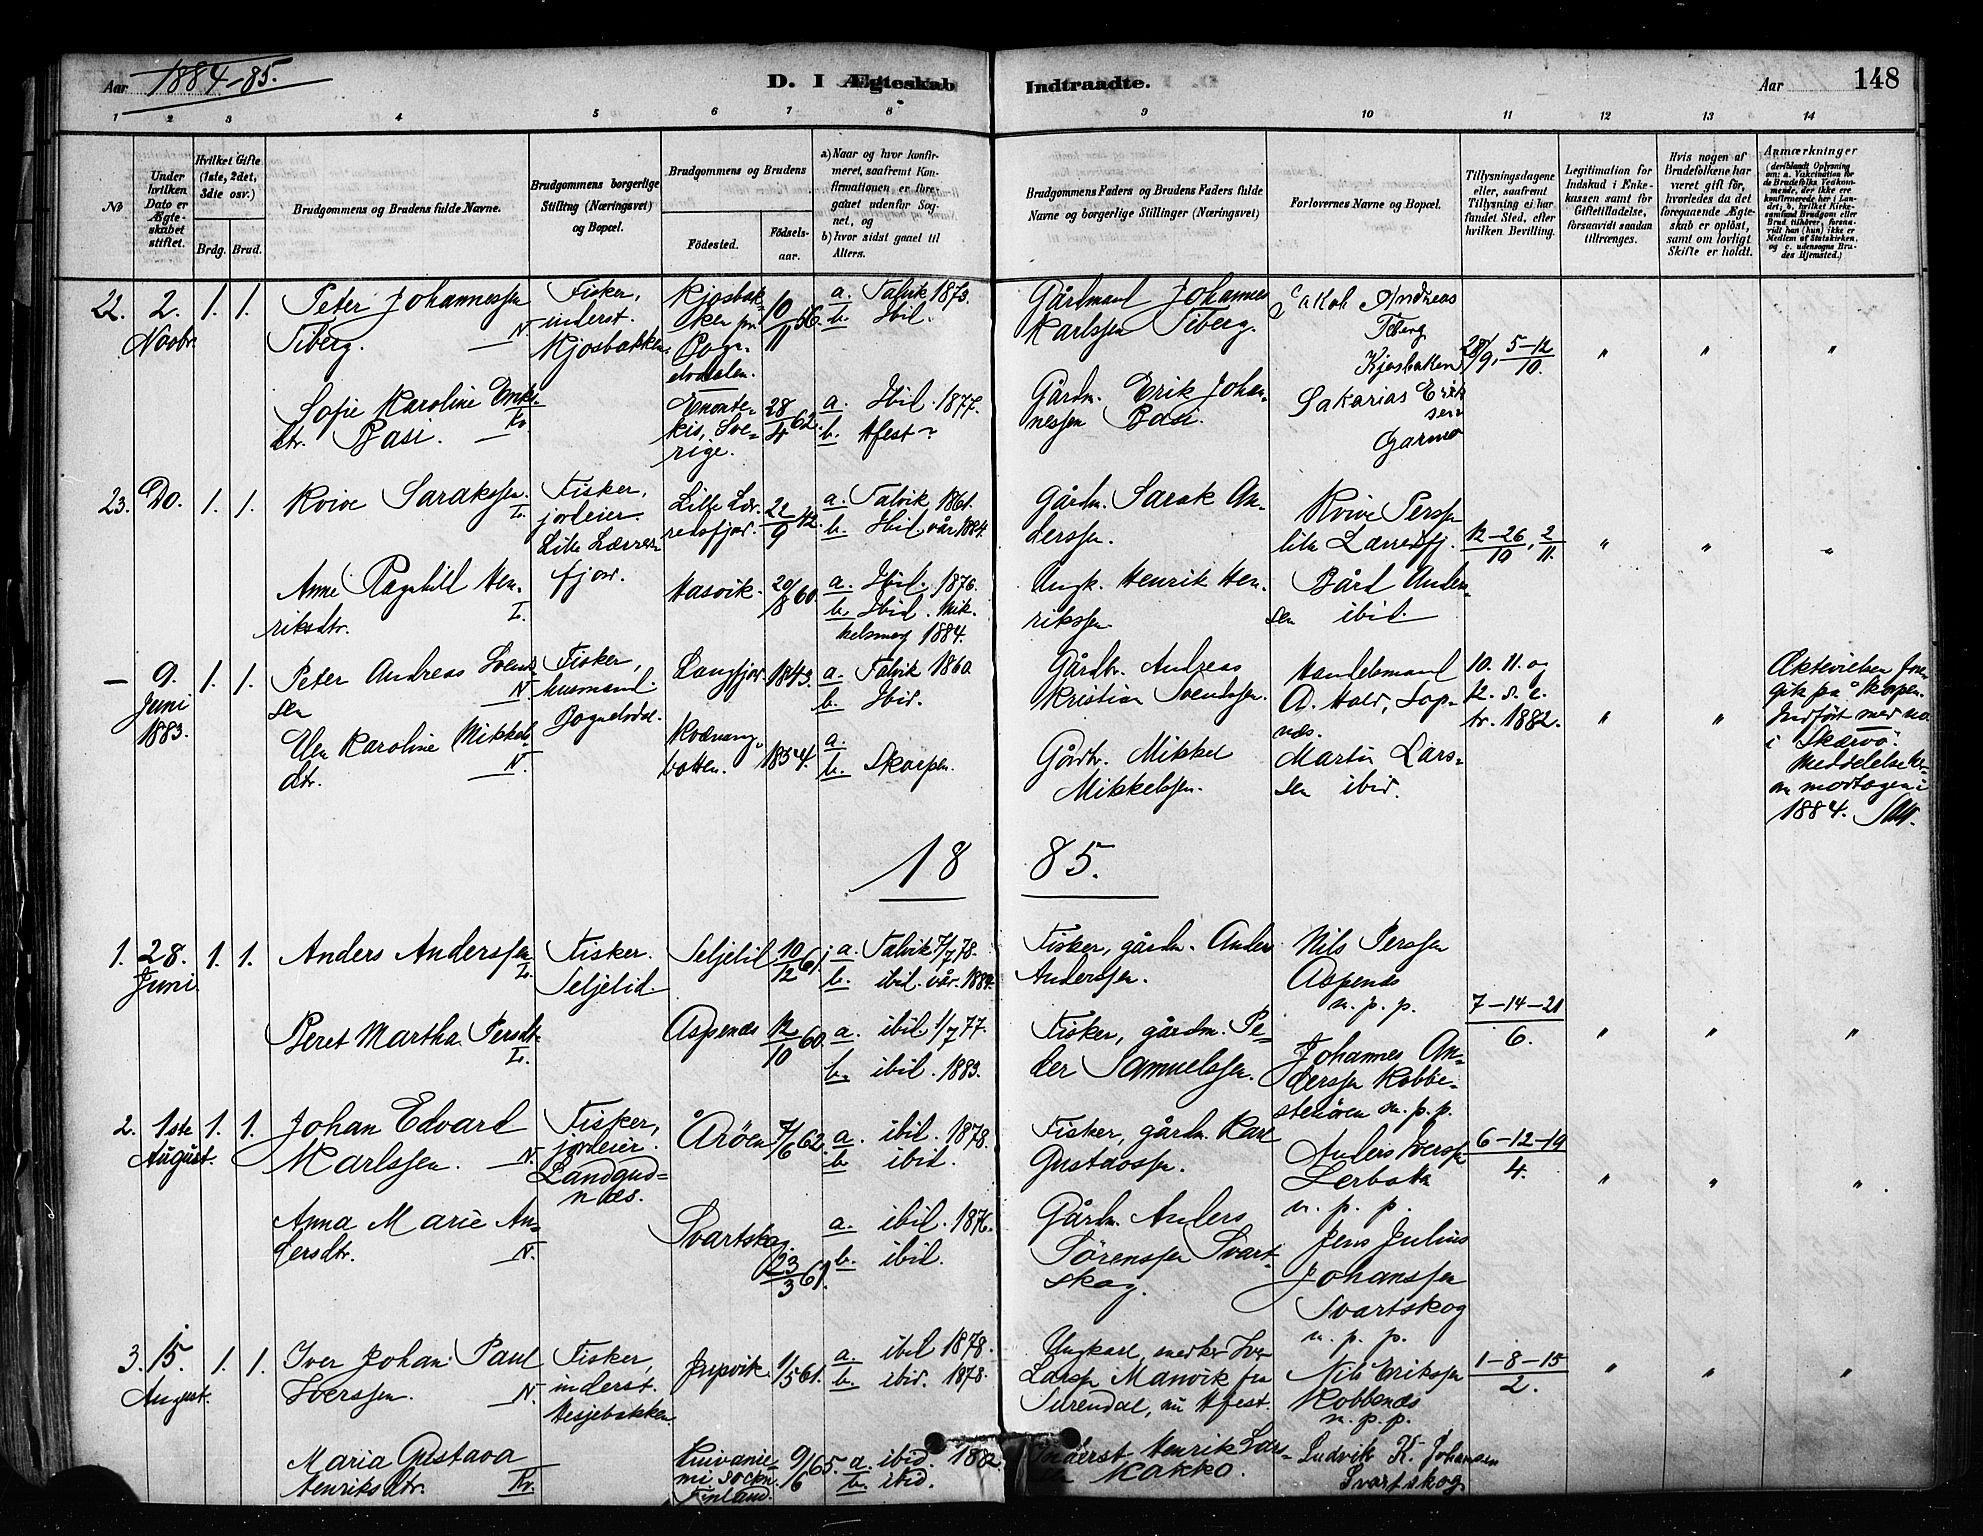 Aar 1884-85.
D. I Ægteskab Indtraadte.
Aar 148
1 2 3 4 5 6 7 8 9 10 11 12 13 14
No
Under hvilken Dato er Ægteskabet stiftet.
Hvilket Gifte (1ste, 2det, 3die osv.)
Brdg. Brud.
Brudgommens og Brudens fulde Navne.
Brudgommens borgerlige Stilling (Næringsvei) og Bopæl.
Brudgommens og Brudens
Fødested.
Fødselsaar.
a) Naar og hvor konfirmeret, saafremt Konfirmationen er foregaaet udenfor Sognet, og
b) hvor sidst gaaet til Alters.
Brudgommens Faders og Brudens Faders fulde Navne og borgerlige Stillinger (Næringsvei)
Forlovernes Navne og Bopæl.
Tillysningsdagene eller, saafremt Tillysning ei har fundet Sted, efter hvilken Bevilling.
Legitimation for Indskud i Enkekassen samt for Giftetilladelse, forsaavidt saadan tiltrænges.
Hvis nogen af Brudefolkene har været gift før, hvorledes da det foregaaende Ægteskab er opløst, samt om lovligt Skifte er holdt.
Anmærkninger
22. 2. Novbr. 1. 1.
Peter Johannessen Tiberg. N
Fisker, inderst. Kjosbakken.
10/11 56.
a. Talvik 1873.
b. Ibid.
Gårdmand Johannes Karlssen Tiberg.
Jakob Andreas
Kjosbaken
5-12/10.
Sofie Karoline Eriksdtr. Basi. Kv
Enontekis, Sverige.
28/4 62.
a. Ibid. 1877.
b. Hfest
Gårdm. Erik Johannessen Basi.
Sakarias Eriksen
Garmo
23. Do. 1. 1.
Roive Sarakssen. L.
Fisker, jordeier. Lille Lærresfjor.
22/9 42.
a. Talvik 1861.
b. Ibid. vår 1884.
Gårdm. Sarak Anderssen.
Roive Perssen
12-26/10, 2/11.
Anne Ragnhild Henriksdtr. L.
Hasvik.
20/8 60.
a. Ibid. 1876.
b. Ibid. Mikkelsmes 1884.
Ungk. Henrik Henrikssen.
Bård Andersen ibid.
— 9. Juni 1883. 1. 1.
Peter Andreas Svendsen N
Fisker, husmand. Bognelvdal.
Langfjor.
1843.
a. Talvik 1860.
b. Ibid.
Gårdbr. Andreas Kristian Svendssen.
Handelsmand A. Hald, Sopnes.
10. 11. og 12. s. e. tr. 1882.
Ægtevielsen foregik på Skorpen. Indført med no i Skærvö. Meddelelse herom modtagen i 1884.
Elen Karoline Mikkelsdtr. N.
Kvænangbotten.
1854.
a.
b. Skorpen.
Gårdbr. Mikkel Mikkelssen.
Martin Larssen ibid.
18 85.
1. 28. Juni 1. 1.
Anders Anderssen L.
Fisker. Seljelid.
Seljelid
10/12 61.
a. Talvik 7/7 78.
b. ibid. vår. 1884.
Fisker, gårdm. Anders Anderssen.
Nils Perssen Aspenes n. p. p.
7-14-21/6.
Beret Martha Persdtr. L.
Aspenæs
12/10 60.
a. ibid. 1/7 77.
b. ibid. 1883.
Fisker, gårdm. Peder Samuelssen.
Johannes Anderssen Kobbestenören n. p. p.
2. 1ste August. 1. 1.
Johan Edvard Karlssen. N.
Fisker, jordeier. Landgudnæs.
Åröen
7/6 62.
a. ibid. 1878.
b. ibid.
Fisker, gårdm. Karl Gustavssen.
Anders Iverssen Lerbak n. p. p.
6-12-19/4.
Anna Marie Andersdtr. N.
Svartskog.
23/3 61.
a. ibid. 1876.
b. ibid.
Gårdm. Anders Sörenssen Svartskog.
Jens Julius Johanssen Svartskog n. p. p.
3. 15. August. 1. 1.
Iver Johan Paul Iverssen. N.
Fisker, inderst. Hesjebakken
Jupvik.
1/5 61.
a. ibid 1878.
b. ibid. 1878.
Ungkarl, Iver Larssen Manvik fra Surendal, nu Hfest.
Nils Erikssen Kobbenæs n. p. p.
1-8-15/2.
Maria Gustava Henriksdtr. Kv.
Finland.
9/6 65.
a. ibid. 1882.
b. ibid.
Inderst Henrik Larssen Makko.
Ludvik K. Johansen Svartskog